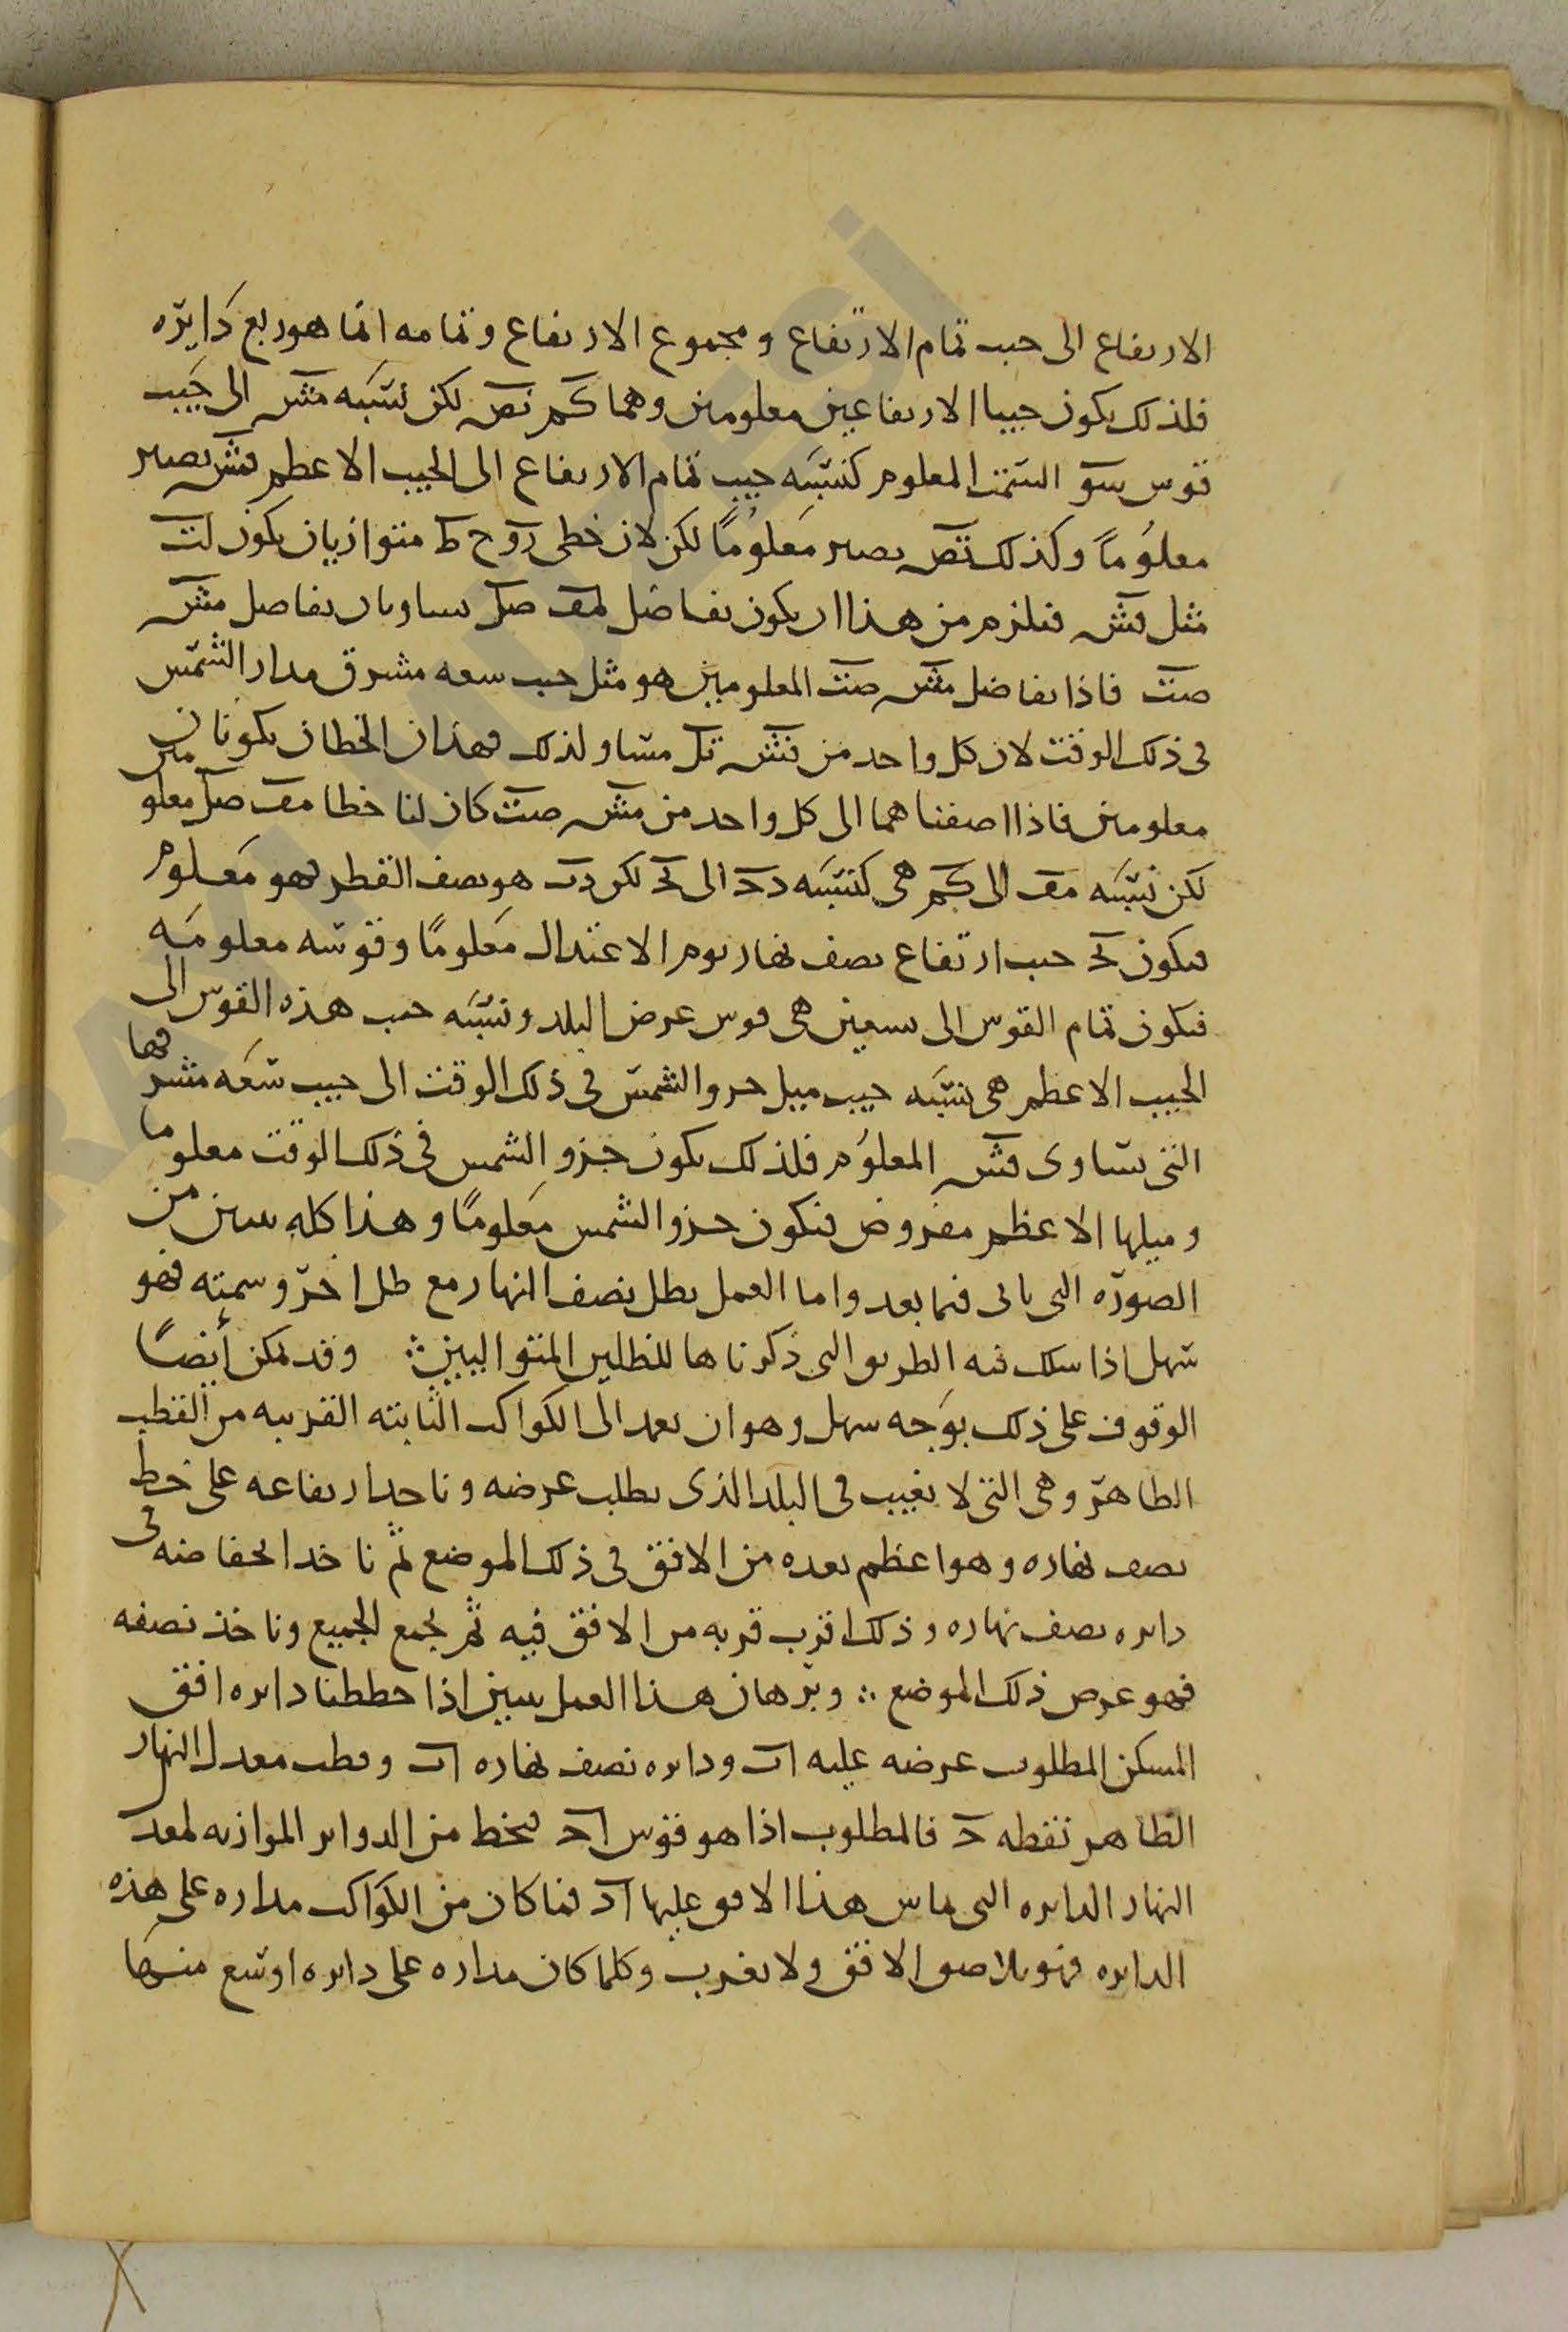 الارتفاع الى جيب تمام الارتفاع ومجموع الارتفاع وتمامه انما هو ربع دايره
فلذلك يكون جيبا الارتفاعين معلومين وهما كم نص لكن نسبه مش الى جيب
قوس سو السمت المعلوم كنسبه جيب تمام الارتفاع الى الجيب الاعظم فمش يصير
معلوما وكذلك تص يصير معلوما لكن لان خطى روح ط متوازيان يكون لت
مثل قش فيلزم من هذا ان يكون تفاضل لمف صل يساويان تفاضل مش
صت فاذا تفاضل مش صت المعلومين هو مثل جيب سعه مشرق مدار الشمس
فى ذلك الوقت لان كل واحد من قش تل مساو لذلك فهذان الخطان يكونان
معلومين فاذا اضفناهما الى كل واحد من مش صت كان لنا خطا مف صل معلومين
لكن نسبه مف الى كم هى كنسبه دح الى كح لكن دب هو نصف القطر فهو معلوم
فيكون كح جيب ارتفاع نصف نهار يوم الاعتدال معلوما وقوسه معلومه
فيكون تمام القوس الى تسعين هى قوس عرض البلد ونسبه جيب هذه القوس الى
الجيب الاعظم هى نسبه جيب ميل جزو الشمس فى ذلك الوقت الى جيب سعه مشرقها
التى تساوى قش المعلوم فلذلك يكون جزو الشمس فى ذلك الوقت معلوما
وميلها الاعظم مفروض فيكون جزو الشمس معلوما وهذا كله يبين من
الصوره التى تاتى فيما بعد واما العمل بظل نصف النهار مع ظل اخر وسمته فهو
سهل اذا سلك فيه الطريق التى ذكرناها للظلين المتواليين وقد يمكن أيضا
الوقوف على ذلك بوجه سهل وهو ان نعمد الى الكواكب الثابته القريبه من القطب
الظاهر وهى التى لا تغيب فى البلد الذى نطلب عرضه وناخذ ارتفاعه على خط
نصف نهاره وهو اعظم بعده من الافق فى ذلك الموضع ثم ناخذ انخفاضه فى
دايره نصف نهاره وذلك اقرب قربه من الافق فيه ثم نجمع الجميع وناخذ نصفه
فهو عرض ذلك الموضع وبرهان هذا العمل يبين اذا خططنا دايره افق
المسكن المطلوب عرضه عليه اب ودايره نصف نهاره اب وقطب معدل النهار
الظاهر نقطه ح فالمطلوب اذا هو قوس اح فنخط من الدواير الموازيه لمعدل
النهار الدايره التى تماس هذا الافق عليها اد فما كان من الكواكب مداره على هذه
الدايره فهو يلاصق الافق ولا يغرب وكلما كان مداره على دايره اوسع منها